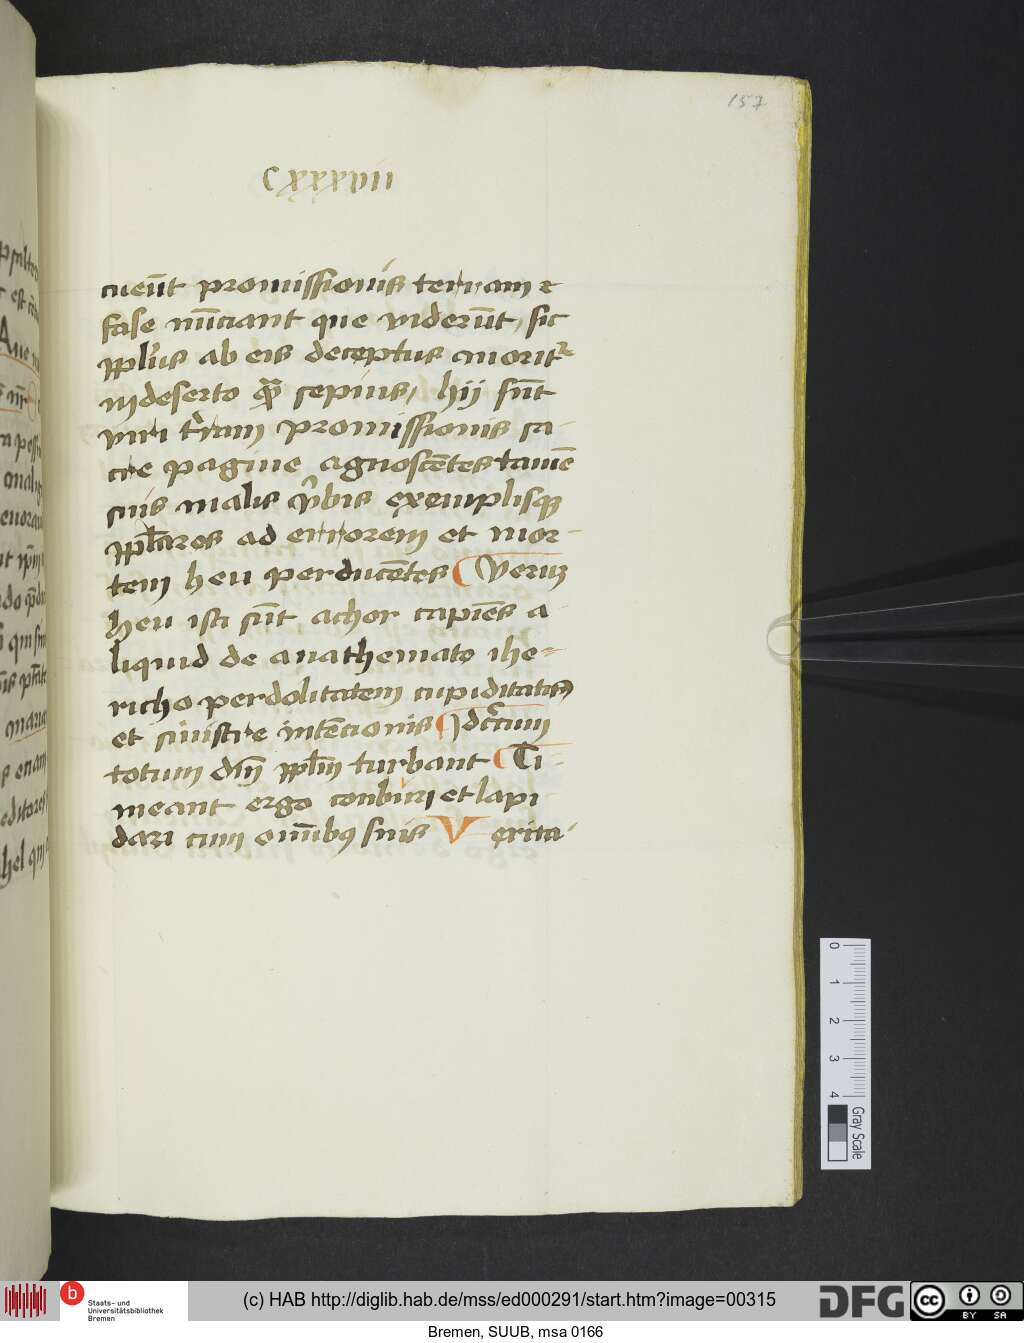 157
Cxxxvii
cueūt promissionis terram et
false nūciant que viderūt, sic
pplus ab eis deceptus morit
in deserto sepius, hij sūt
viri terram promissionis sa-
cre pagine agnoscētes tamē
suis malis vbis exemplisqz
ppłares ad errorem et mor-
tem heu perducētes Verius
heu isti sūt achor capiēs a
liquid de anathemato ihe-
richo per dolitatem cupiditatis
et sinistre intēcionis
totum dm̄ pplm̄ turbant Ti-
meant ergo conburi et lapi
dari cum omībus suis Verita-
0 1 2 3 4
Gray Scale
b Staats- und
Universitätsbibliothek
Bremen
(c) HAB http://diglib.hab.de/mss/ed000291/start.htm?image=00315
DFG
cc BY SA
Bremen, SUUB, msa 0166